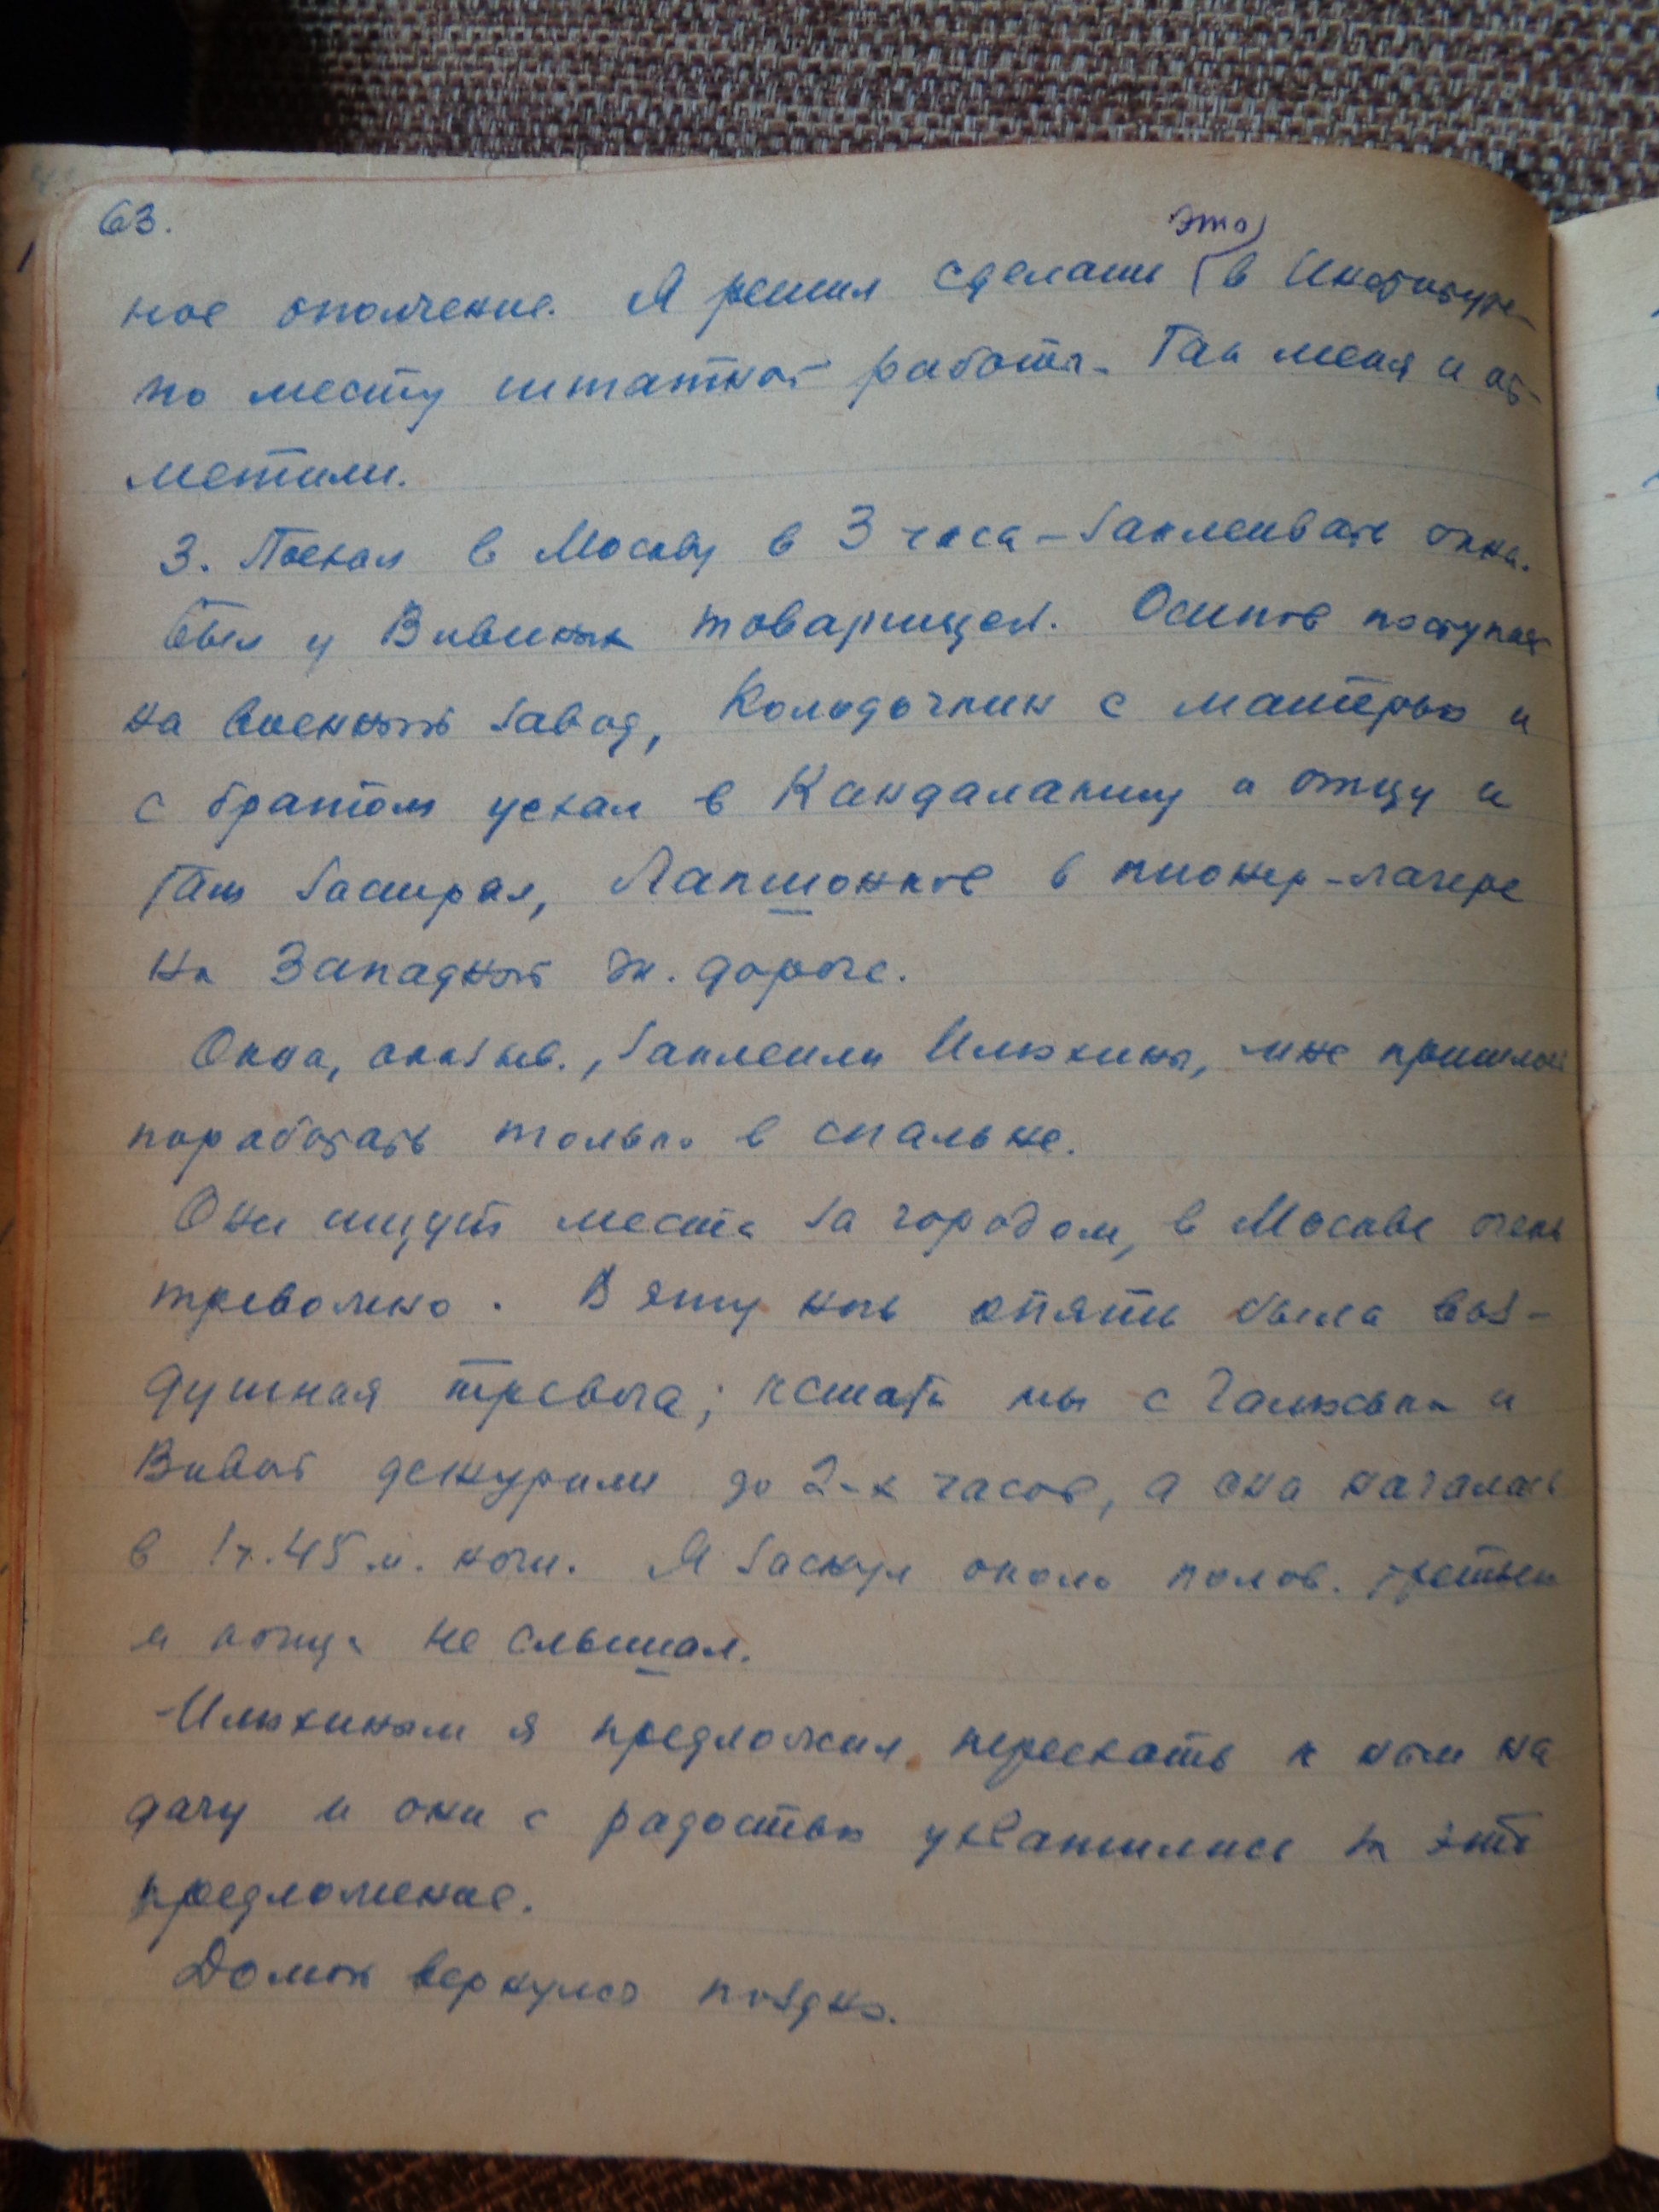 63.
это
ное ополчение. Я решил сделать в Институте
по месту штатной работы. Так меня и от-
метили.
3. Поехал в Москву в 3 часа – заклеивать окна.
Был у Вивиных товарищей. Осипов поступает
на военный завод, Колодочкин с матерью и
с братом уехал в Кандалакшу к отцу и
там застрял, Лапшонков в пионер-лагере
на Западной ж. дороге.
Окна, оказыв., заклеили Илюхины, мне пришлось
поработать только в спальне.
Они ищут места за городом, в Москве очень
тревожно. В эту ночь опять была воз-
душная тревога; кстати мы с Галюсьной и
Вивой дежурили до 2-х часов, а она началась
в 1 ч. 45 м. ночи. Я заснул около полов. третьего
и конца не слышал.
Илюхиным я предложил переехать к нам на
дачу и они с радостью ухватились за это
предложение.
Домой вернулся поздно.